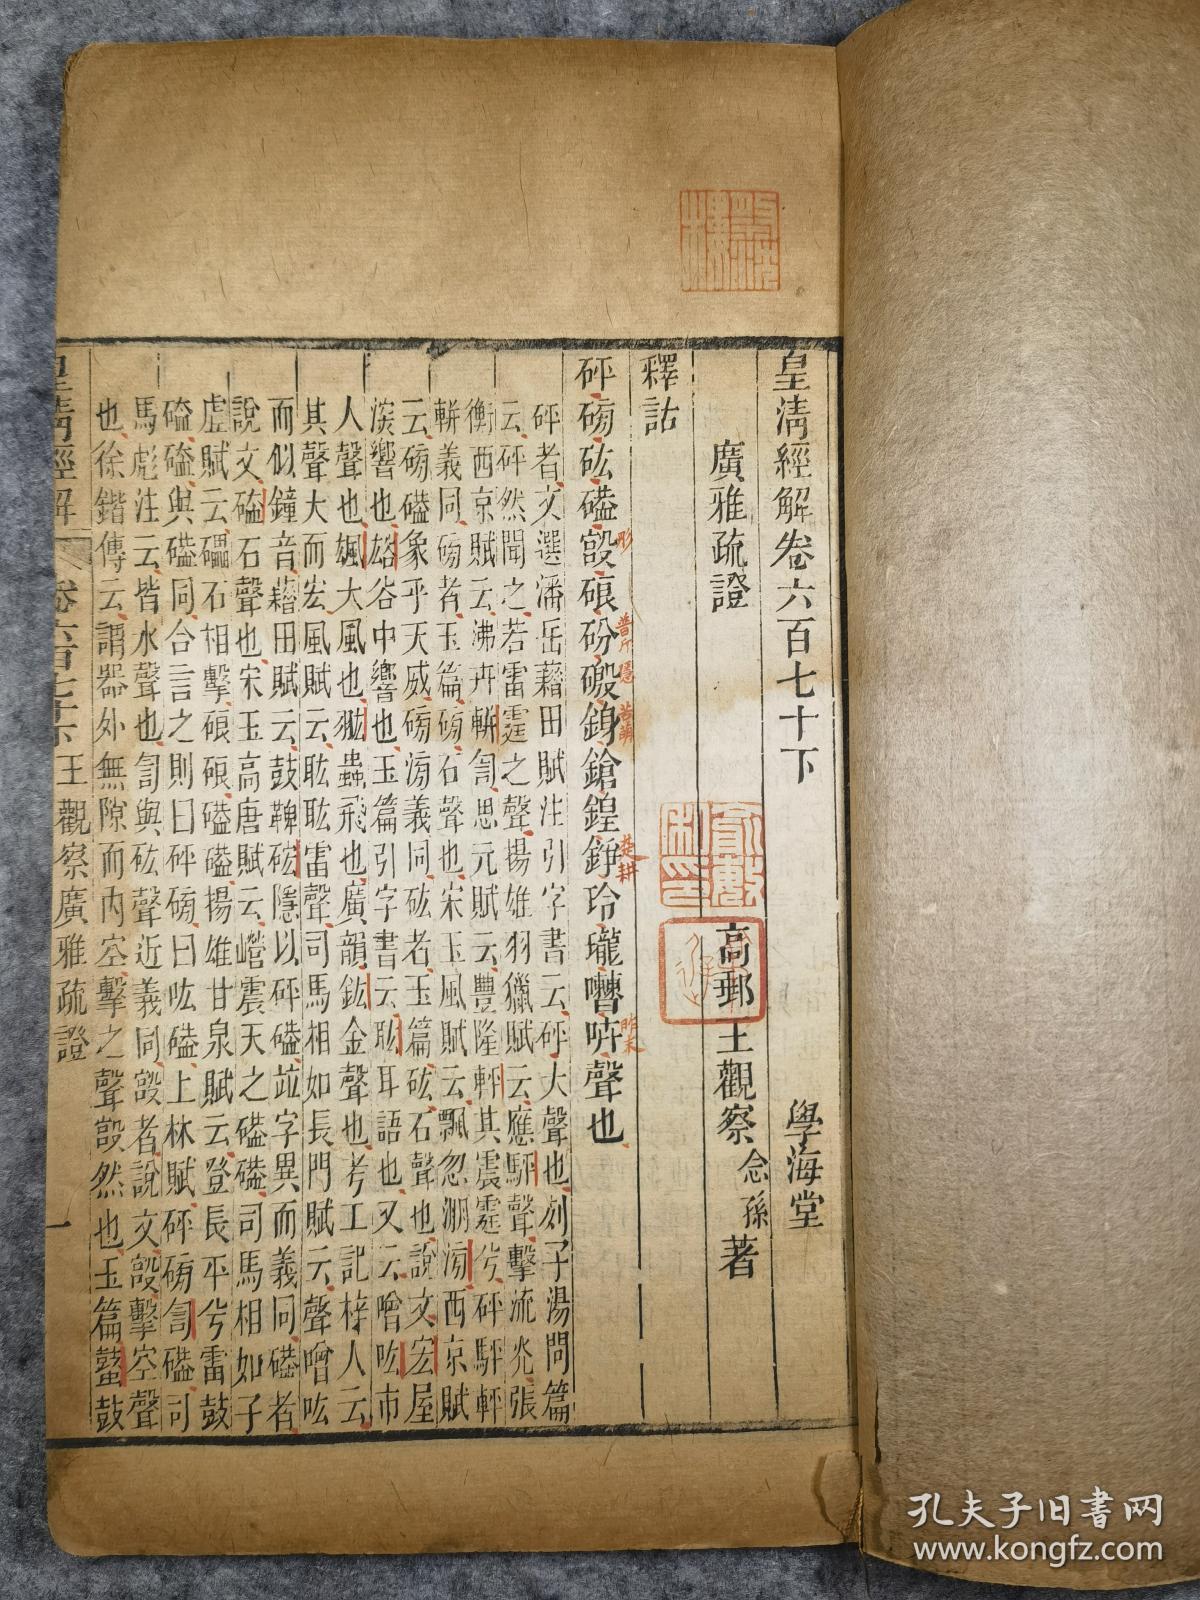 皇清經解卷六百七十下 學海堂
廣雅疏證 高郵王觀察念孫著
釋詁
砰磅砿磕毃硠砏磤鍧鎗鍠錚玲瓏嘈㖕聲也
砰者文選潘岳藉田賦注引字書云砰大聲也列子湯問篇
云砰然聞之若雷霆之聲揚雄羽獵賦云應駍聲擊流光張
衡西京賦云沸卉軿訇思元賦云豐隆軯其震霆兮砰駍軯
軿義同磅者玉篇磅石聲也宋玉風賦云飄忽淜滂西京賦
云磅磕象乎天威磅滂義同砿者玉篇砿石聲也說文宏屋
深響也谹谷中響也玉篇引字書云耾耳語也又云噌吰市
人聲也颹大風也䡏蟲飛也廣韻鈜金聲也考工記梓人云
其聲大而宏風賦云耾耾雷聲司馬相如長門賦云聲噌吰
而似鐘音藉田賦云鼓鞞硡隱以砰磕竝字異而義同磕者
說文磕石聲也宋玉高唐賦云㟧震天之磕磕司馬相如子
虛賦云礧石相擊硠硠磕磕揚雄甘泉賦云登長平兮雷鼓
磕磕與磕同合言之則曰砰磅曰吰磕上林賦砰磅訇磕司
馬彪注云皆水聲也訇與砿聲近義同毃者說文毃擊空聲
也徐鍇傳云謂器外無隙而內空擊之聲毃然也玉篇䥐鼓
皇清經解 卷六百七十下 王觀察廣雅疏證 一
彤
普斤
隱
苦萌
楚耕
昨末
孔夫子旧书网
www.kongfz.com